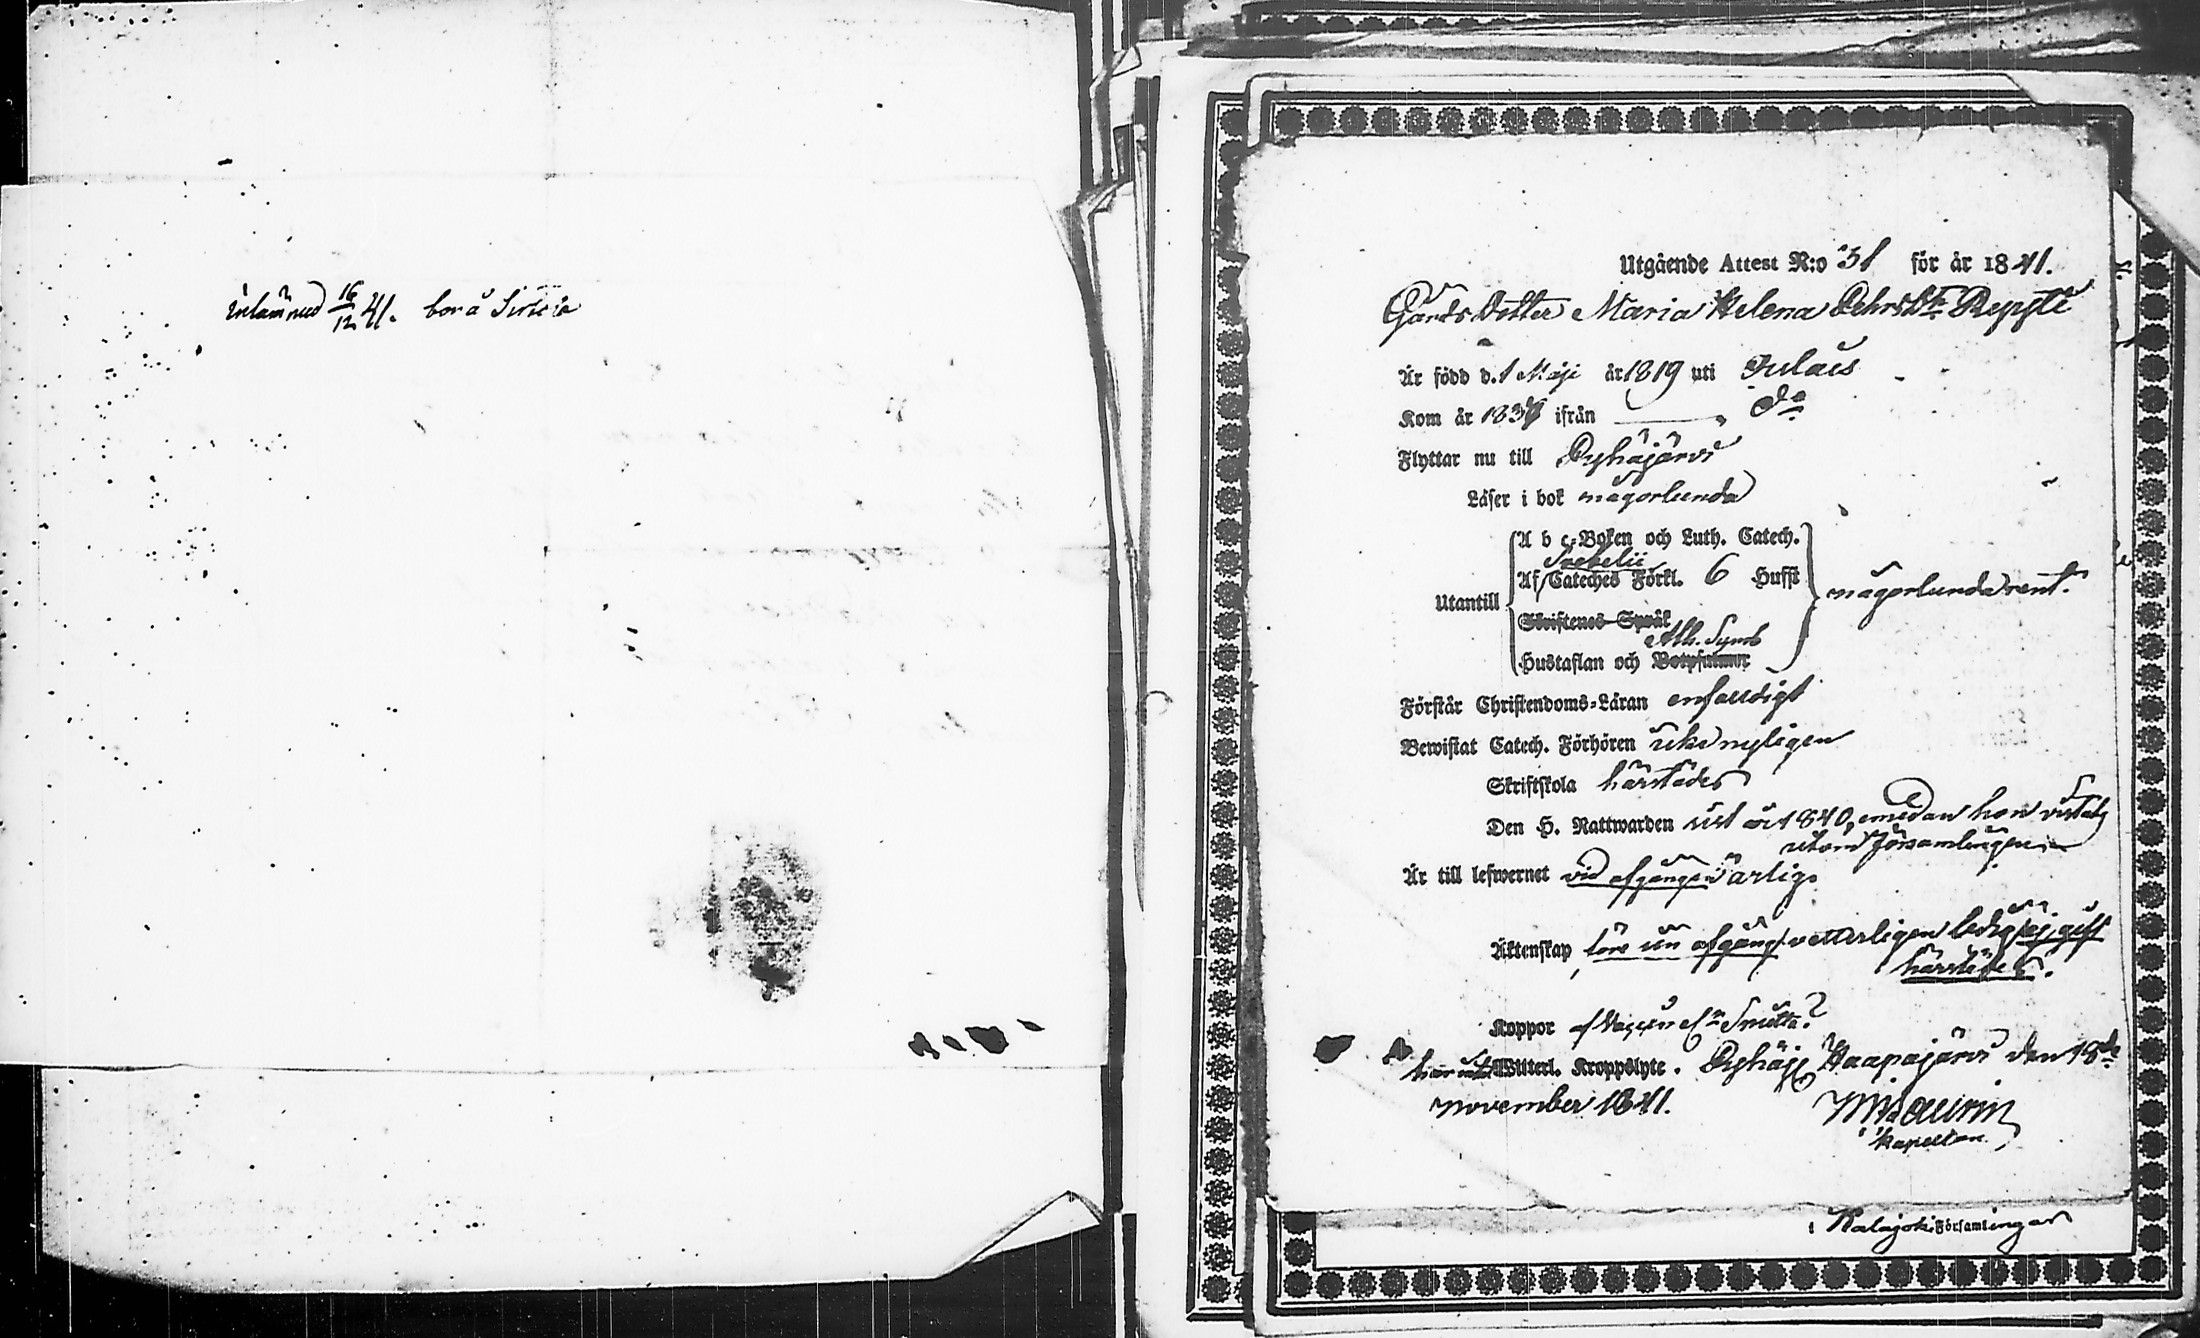 inlämnad 16/12 41. bor å
Utgående Attest N:o 31 för år 1841.
Gårds Dotter Maria Helena Pehrs Dr
Är född d. 1 Maji år 1819 uti
Kom år 183 ifrån — Do
Flyttar nu till Pyhäjärvi
Läser i bok någorlunda
A b c-Boken och Luth. Catech.
Svebelii
Utantill Af Cateches Förkl. 6 Hufst någorlunda rent.
Skriftenes Språk
Ath. Symb
Hustaflan och Botpsalmer
Förstår Christendoms-Läran enfaldigt
Bewistat Catech. Förhören icke nyligen
Skriftskola härstädes
Den H. Nattwarden sist år 1840, emedan hon vistats
utom Församlingen
Är till lefwernet vid afgången ärlig
Äktenskap före sin afgång vetterligen ledig, ej gift
härstädes.
Koppor af Vaccin el:r Smitta?
Witterl. Kroppslyte. Pyhäj Haapajärvi den 18de
November 1841.
Kapellan
i Kalajoki Församlingar